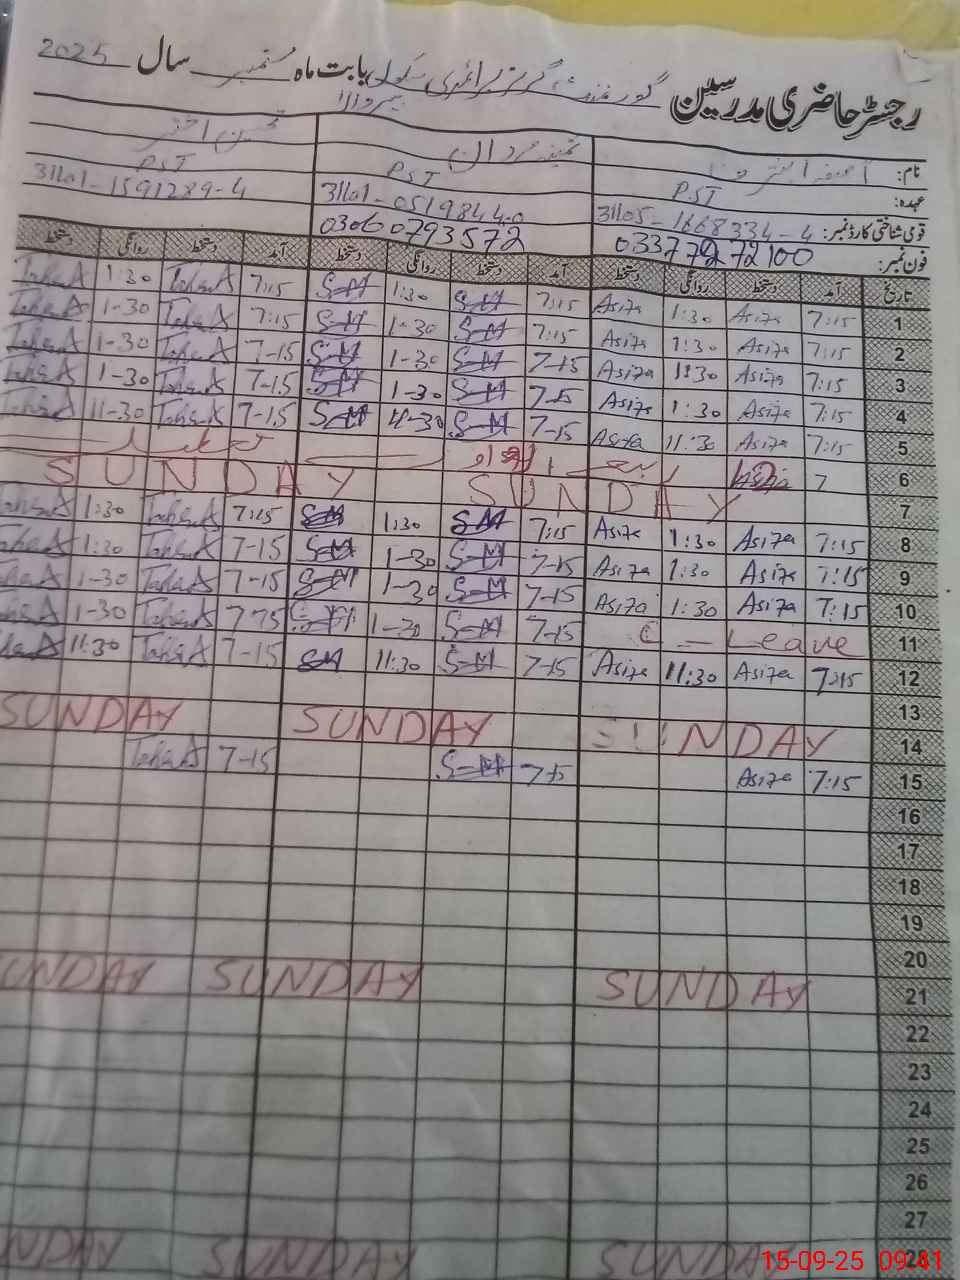 رجسٹر حاضری مدرسین گورنمنٹ گرلز پرائمری سکول بابت ماہ ستمبر سال 2025
نام:
عہدہ: PST PST PST
قومی شناختی کارڈ نمبر: 31105-1668334-4 31101-0519844-0 31101-1591289-4
فون نمبر: 03377272100 03060793572
تاریخ آمد دستخط روانگی دستخط آمد دستخط روانگی دستخط آمد دستخط روانگی دستخط
1 7:15 Asiza 1:30 Asiza 7:15 S-M 1:30 S-M 7:15 TahaA 1:30 TahaA
2 7:15 Asiza 1:30 Asiza 7:15 S-M 1-30 S-M 7:15 TahaA 1-30 TahaA
3 7:15 Asiza 1:30 Asiza 7-15 S-M 1-30 S-M 7-15 TahaA 1-30 TahaA
4 7:15 Asiza 1:30 Asiza 7-15 S-M 1-30 S-M 7-15 TahaA 1-30 TahaA
5 7:15 Asiza 11:30 Asiza 7-15 S-M 11-30 S-M 7-15 TahaA 11-30 TahaA
6 7 تعطیل
7 SUNDAY SUNDAY
8 7:15 Asiza 1:30 Asiza 7:15 S-M 1:30 S-M 7:15 TahaA 1:30 TahaA
9 7:15 Asiza 1:30 Asiza 7-15 S-M 1-30 S-M 7-15 TahaA 1:30 TahaA
10 7:15 Asiza 1:30 Asiza 7-15 S-M 1-30 S-M 7-15 TahaA 1-30 TahaA
11 C-Leave 7-15 S-M 1-30 S-M 7-15 TahaA 1-30 TahaA
12 7:15 Asiza 11:30 Asiza 7-15 S-M 11:30 S-M 7-15 TahaA 11:30 TahaA
13
14 SUNDAY SUNDAY SUNDAY
15 7:15 Asiza 7-15 S-M 7-15 TahaA
16
17
18
19
20
21 SUNDAY SUNDAY UNDAY
22
23
24
25
26
27
28 SUNDAY SUNDAY NDAY
15-09-25 09:41